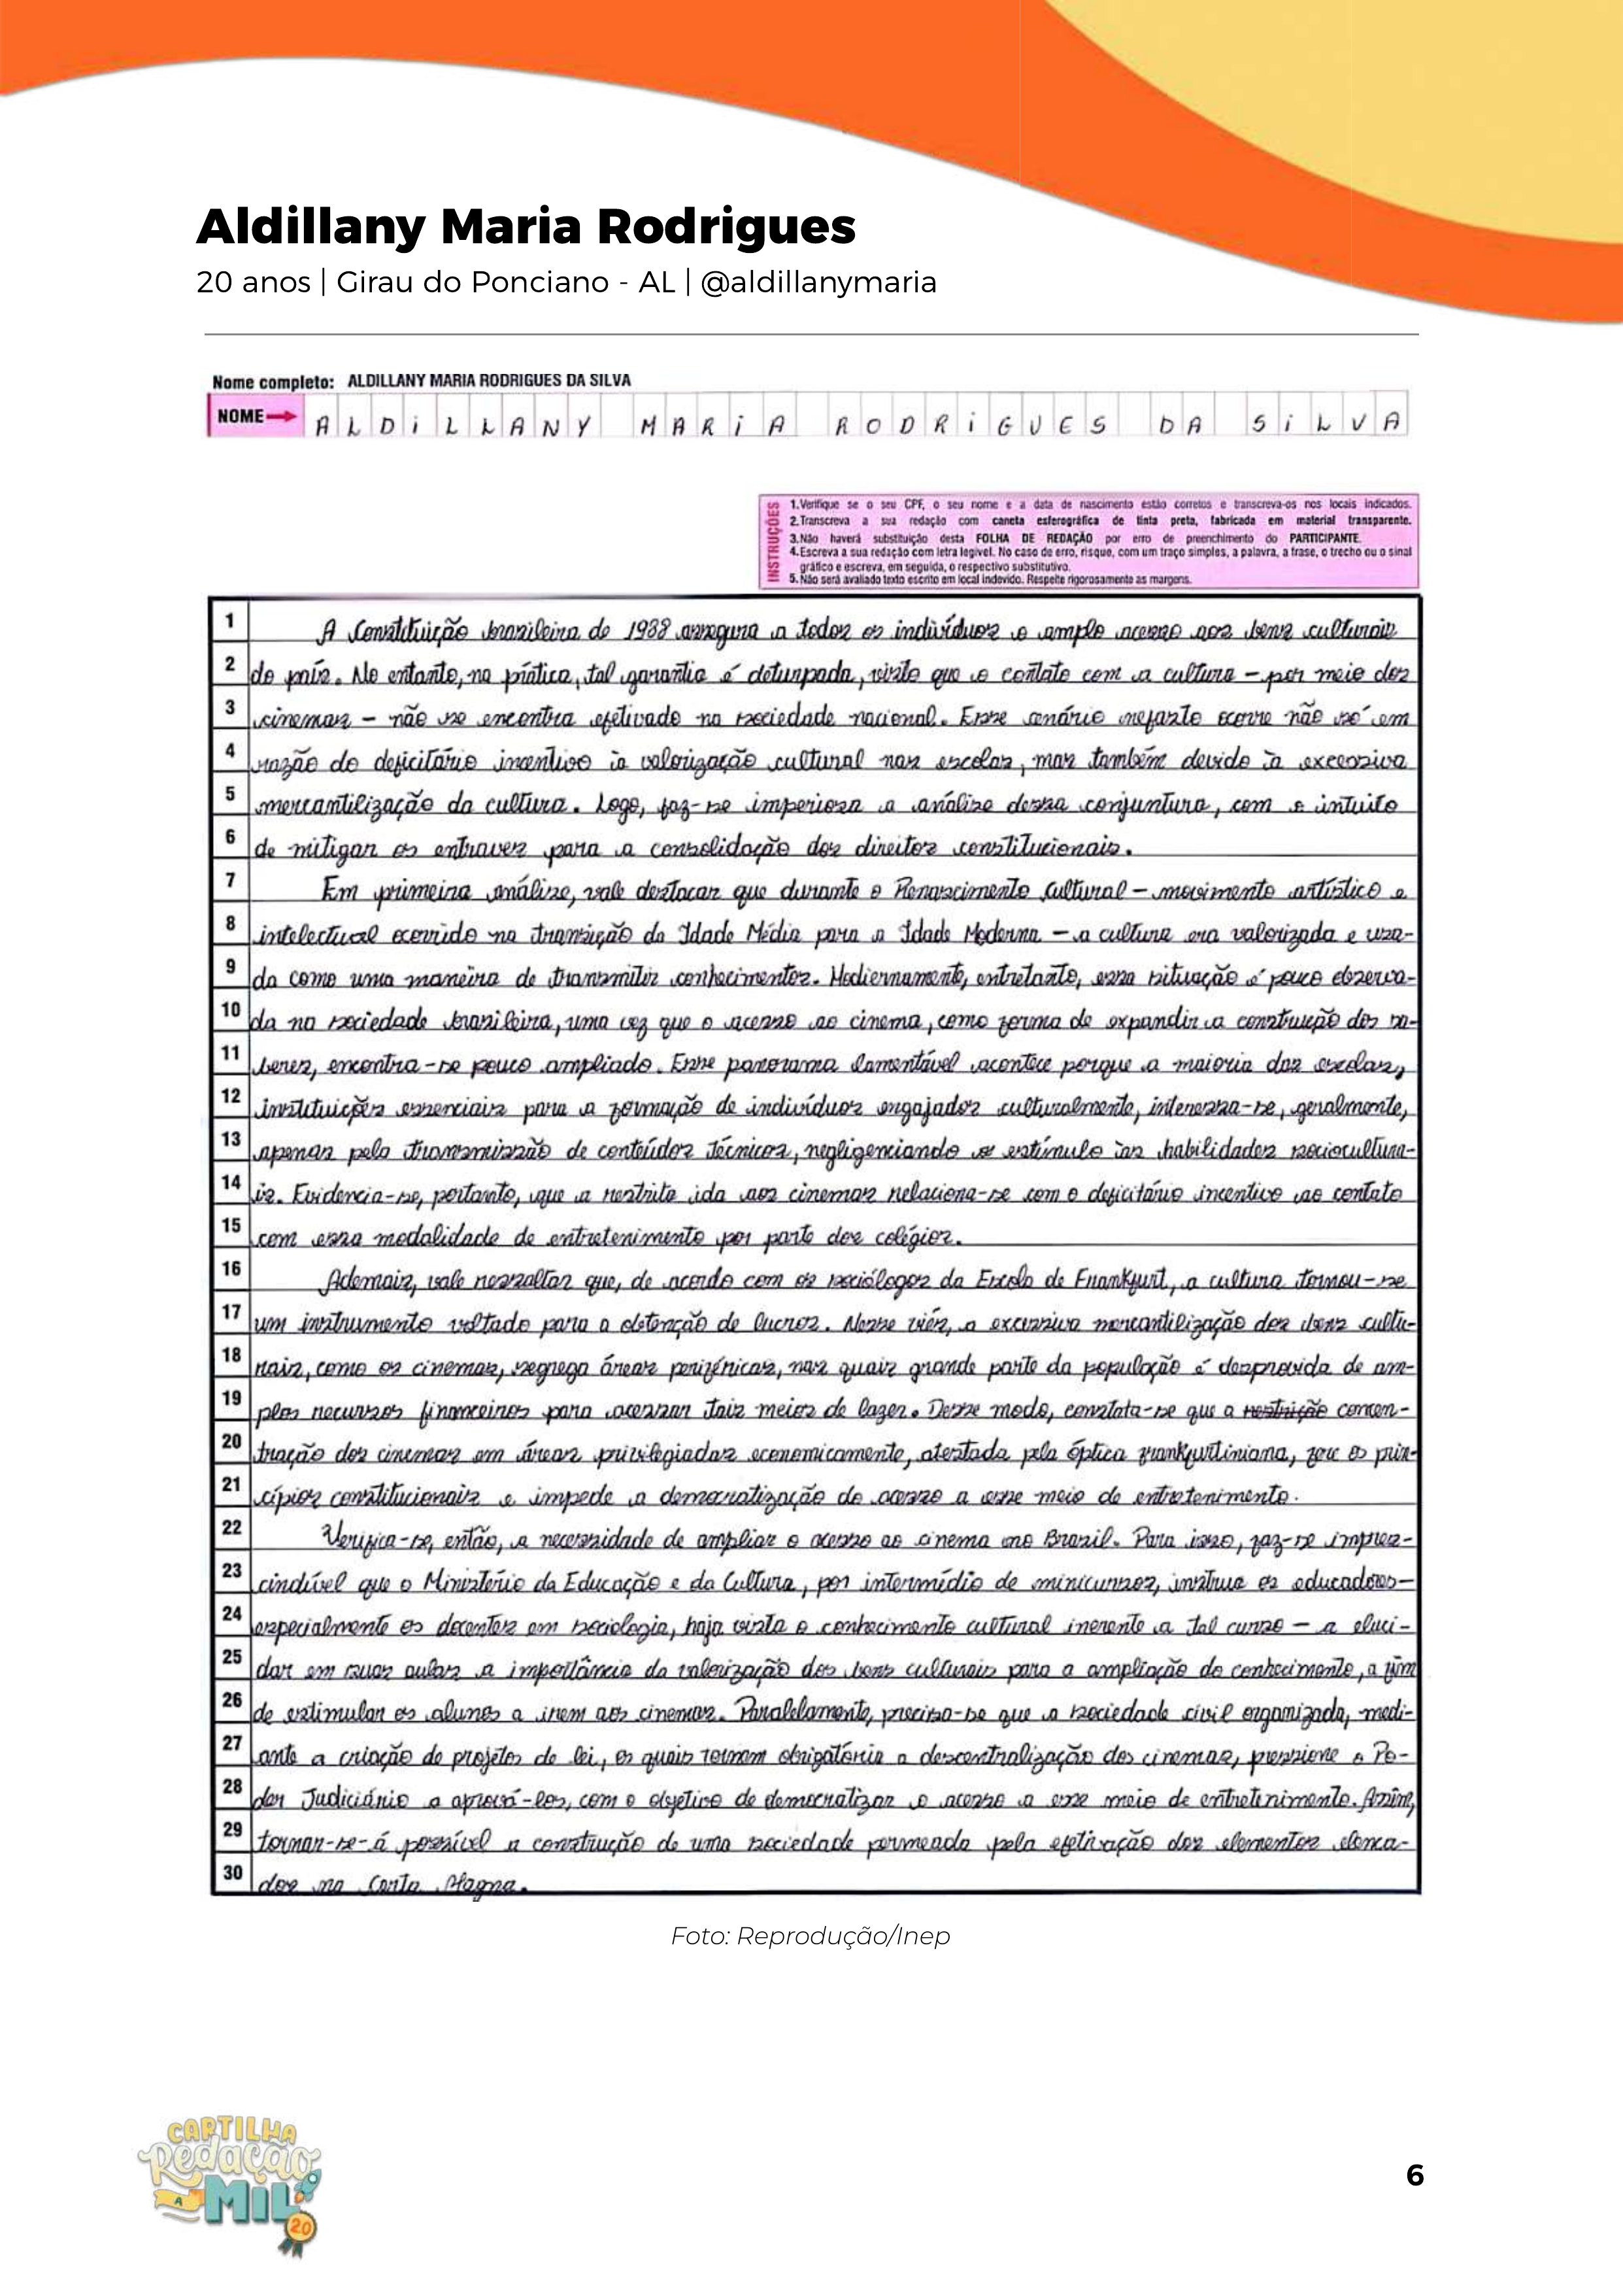 Aldillany Maria Rodrigues
20 anos | Girau do Ponciano - AL | @aldillanymaria
Nome completo: ALDILLANY MARIA RODRIGUES DA SILVA
NOME→ ALDILLANY MARIA RODRIGUES DA SILVA
INSTRUÇÕES
1.Verifique se o seu CPF, o seu nome e a data de nascimento estão corretos e transcreva-os nos locais indicados.
2.Transcreva a sua redação com caneta esferográfica de tinta preta, fabricada em material transparente.
3.Não haverá substituição desta FOLHA DE REDAÇÃO por erro de preenchimento do PARTICIPANTE.
4.Escreva a sua redação com letra legível. No caso de erro, risque, com um traço simples, a palavra, a frase, o trecho ou o sinal
gráfico e escreva, em seguida, o respectivo substitutivo.
5.Não será avaliado texto escrito em local indevido. Respeite rigorosamente as margens.
1 A Constituição brasileira de 1988 assegura a todos os indivíduos o amplo acesso aos bens culturais
2 do país. No entanto, na prática, tal garantia é deturpada, visto que o contato com a cultura – por meio dos
3 cinemas – não se encontra efetivado na sociedade nacional. Esse cenário nefasto ocorre não só em
4 razão do deficitário incentivo à valorização cultural nas escolas, mas também devido à excessiva
5 mercantilização da cultura. Logo, faz-se imperiosa a análise dessa conjuntura, com o intuito
6 de mitigar os entraves para a consolidação dos direitos constitucionais.
7 Em primeira análise, vale destacar que durante o Renascimento Cultural – movimento artístico e
8 intelectual ocorrido na transição da Idade Média para a Idade Moderna – a cultura era valorizada e usa-
9 da como uma maneira de transmitir conhecimentos. Hodiernamente, entretanto, essa situação é pouco observa-
10 da na sociedade brasileira, uma vez que o acesso ao cinema, como forma de expandir a construção dos sa-
11 beres, encontra-se pouco ampliado. Esse panorama lamentável acontece porque a maioria das escolas,
12 instituições essenciais para a formação de indivíduos engajados culturalmente, interessa-se, geralmente,
13 apenas pela transmissão de conteúdos técnicos, negligenciando o estímulo às habilidades sociocultura-
14 is. Evidencia-se, portanto, que a restrita ida aos cinemas relaciona-se com o deficitário incentivo ao contato
15 com essa modalidade de entretenimento por parte dos colégios.
16 Ademais, vale ressaltar que, de acordo com os sociólogos da Escola de Frankfurt, a cultura tornou-se
17 um instrumento voltado para a obtenção de lucros. Nesse viés, a excessiva mercantilização dos bens cultu-
18 rais, como os cinemas, segrega áreas periféricas, nas quais grande parte da população é desprovida de am-
19 plos recursos financeiros para acessar tais meios de lazer. Desse modo, constata-se que a restrição concen-
20 tração dos cinemas em áreas privilegiadas economicamente, atestada pela óptica frankfurtiniana, fere os prin-
21 cípios constitucionais e impede a democratização do acesso a esse meio de entretenimento.
22 Verifica-se, então, a necessidade de ampliar o acesso ao cinema no Brasil. Para isso, faz-se impres-
23 cindível que o Ministério da Educação e da Cultura, por intermédio de minicursos, instrua os educadores –
24 especialmente os docentes em sociologia, haja vista o conhecimento cultural inerente a tal curso – a eluci-
25 dar em suas aulas a importância da valorização dos bens culturais para a ampliação do conhecimento, a fim
26 de estimular os alunos a irem aos cinemas. Paralelamente, precisa-se que a sociedade civil organizada, medi-
27 ante a criação de projetos de lei, os quais tornem obrigatória a descentralização dos cinemas, pressione o Po-
28 der Judiciário a aprová-los, com o objetivo de democratizar o acesso a esse meio de entretenimento. Assim,
29 tornar-se-á possível a construção de uma sociedade permeada pela efetivação dos elementos elenca-
30 dos na Carta Magna.
Foto: Reprodução/Inep
CARTILHA
Redação
A
MIL
20
6